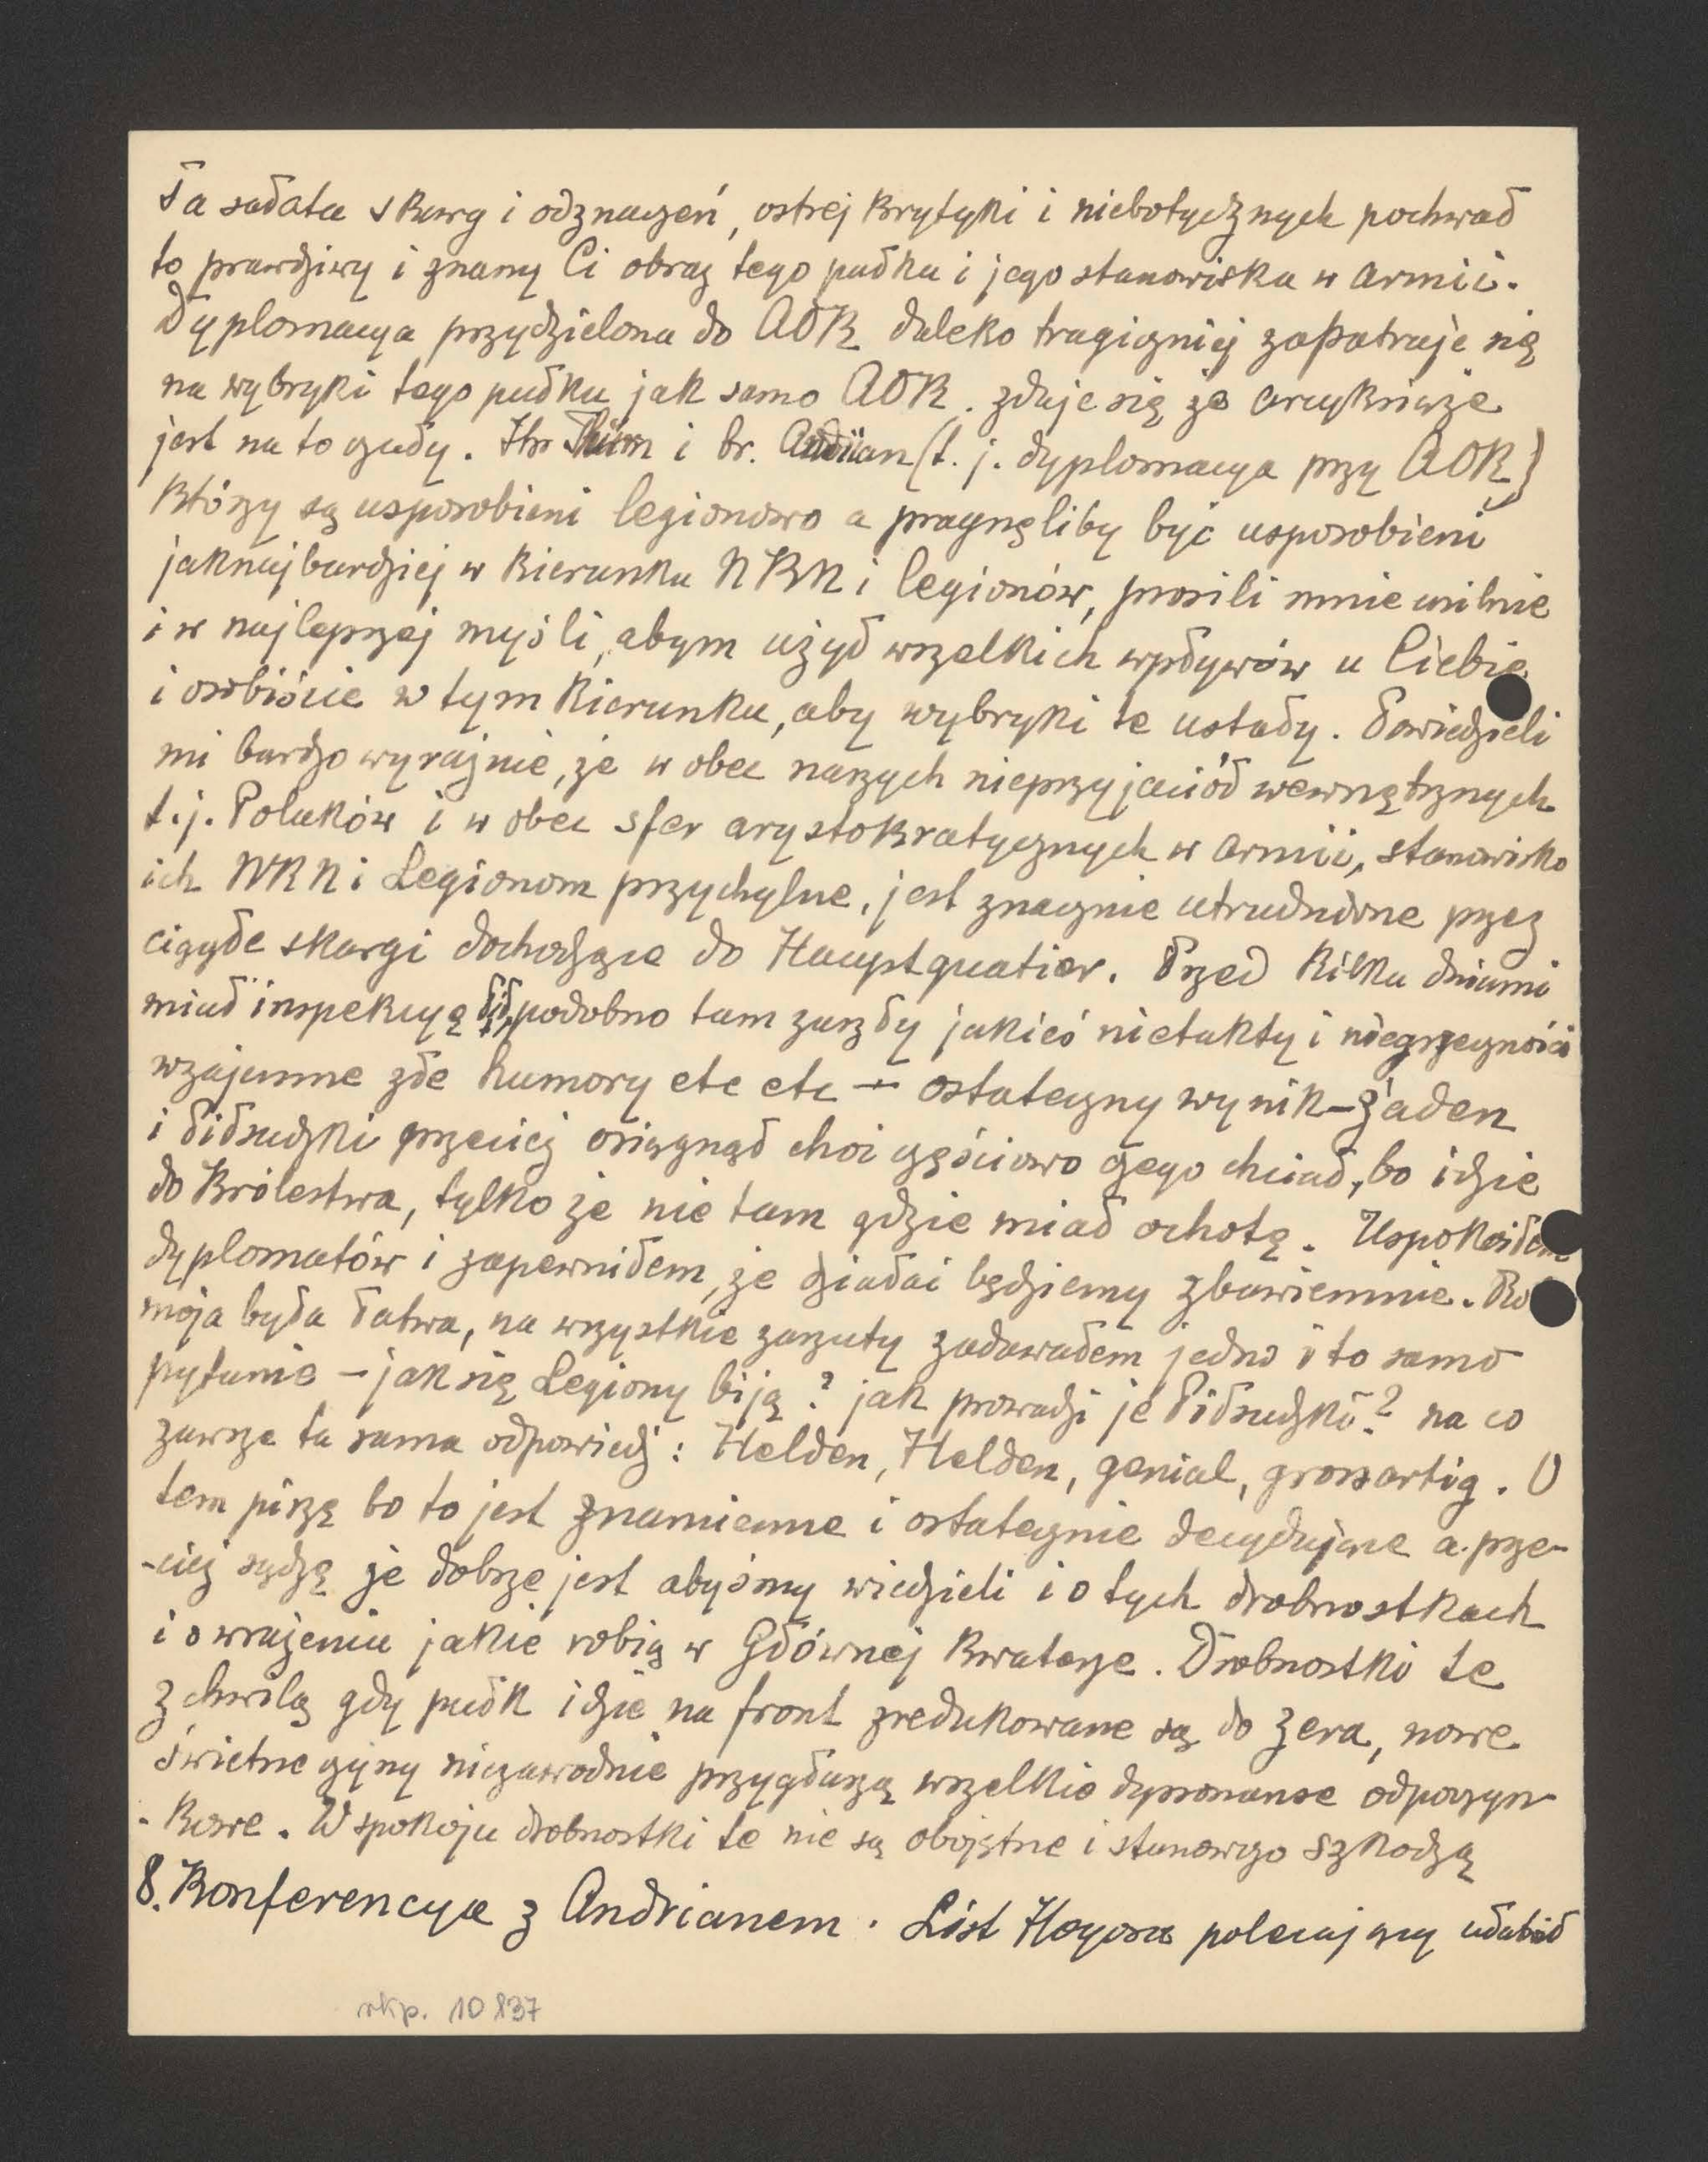 Ta sałata skarg i odznaczeń, ostrej krytyki i niebotycznych pochwał
to prawdziwy i znany Ci obraz tego pułku i jego stanowiska w armii.
Dyplomacya przydzielona do AOK daleko tragiczniej zapatruje się
na wybryki tego pułku jak samo AOK. zdaje się że arcyksiąże
jest na to czuły. Hr Thurn i br. Andrian (t. j. dyplomacya przy AOK)
którzy są usposobieni legionowo a pragnęliby być usposobieni
jaknajbardziej w kierunku NKN i legionów, prosili mnie usilnie
i w najlepszej myśli, abym użył wszelkich wpływów u Ciebie
i osobiście w tym kierunku, aby wybryki te ustały. Powiedzieli
mi bardzo wyraźnie, że w obec naszych nieprzyjaciół wewnętrznych
t.j. Polaków i w obec sfer arystokratycznych w armii, stanowisko
ich NKN i Legionom przychylne, jest znacznie utrudnione przez
ciągłe skargi dochodzące do Hauptquatier. Przed kilku dniami
miał inspekcyę Pił, podobno tam zaszły jakieś nietakty i niegrzeczności
wzajemne złe humory etc etc – ostateczny wynik – żaden
i Piłsudzki przeciez osiągnął choć częściowo czego chciał, bo idzie
do Królestwa, tylko że nie tam gdzie miał ochotę. Uspokoiłem
dyplomatów i zapewniłem, że działać będziemy zbawiennie.
moja była łatwa, na wszystkie zarzuty zadawałem jedno i to samo
pytanie – jak się Legiony biją? jak prowadzi je Piłsudzki? na co
zawsze ta sama odpowiedz: Helden, Helden, genial, grossartig. O
tem piszę bo to jest znamienne i ostatecznie decydujące a prze-
-ciez sądzę że dobrze jest abyśmy wiedzieli i o tych drobnostkach
i o wrażeniu jakie robią w Głównej Kwaterze. Drobnostki te
z chwilą gdy pułk idzie na front zredukowane są do zera, nowe
świetne czyny niezawodnie przygłuszą wszelkie dysonanse odpoczyn-
-kowe. W spokoju drobnostki te nie są obojętne i stanowczo szkodzą
8. Konferencya z Andrianem. List Hoyosa polecający ułatwił
rkp. 10837